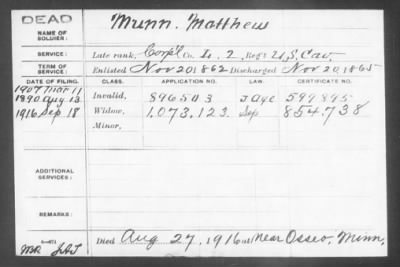 DEAD
NAME OF SOLDIER: Munn. Matthew
SERVICE: Late rank, Corp'l Co. L. 2, Reg't U.S. Cav.
TERM OF SERVICE: Enlisted Nov 20, 1862 Discharged Nov 20, 1865
DATE OF FILING. CLASS. APPLICATION NO. LAW. CERTIFICATE NO.
1907 Mar 11
1890 Aug 13 Invalid, 896503 599895
1916 Sep 18 Widow, 1.073.123 Sep 854.738
Minor,
ADDITIONAL SERVICES:
REMARKS:
Died Aug 27, 1916 at Near Osseo, Minn,